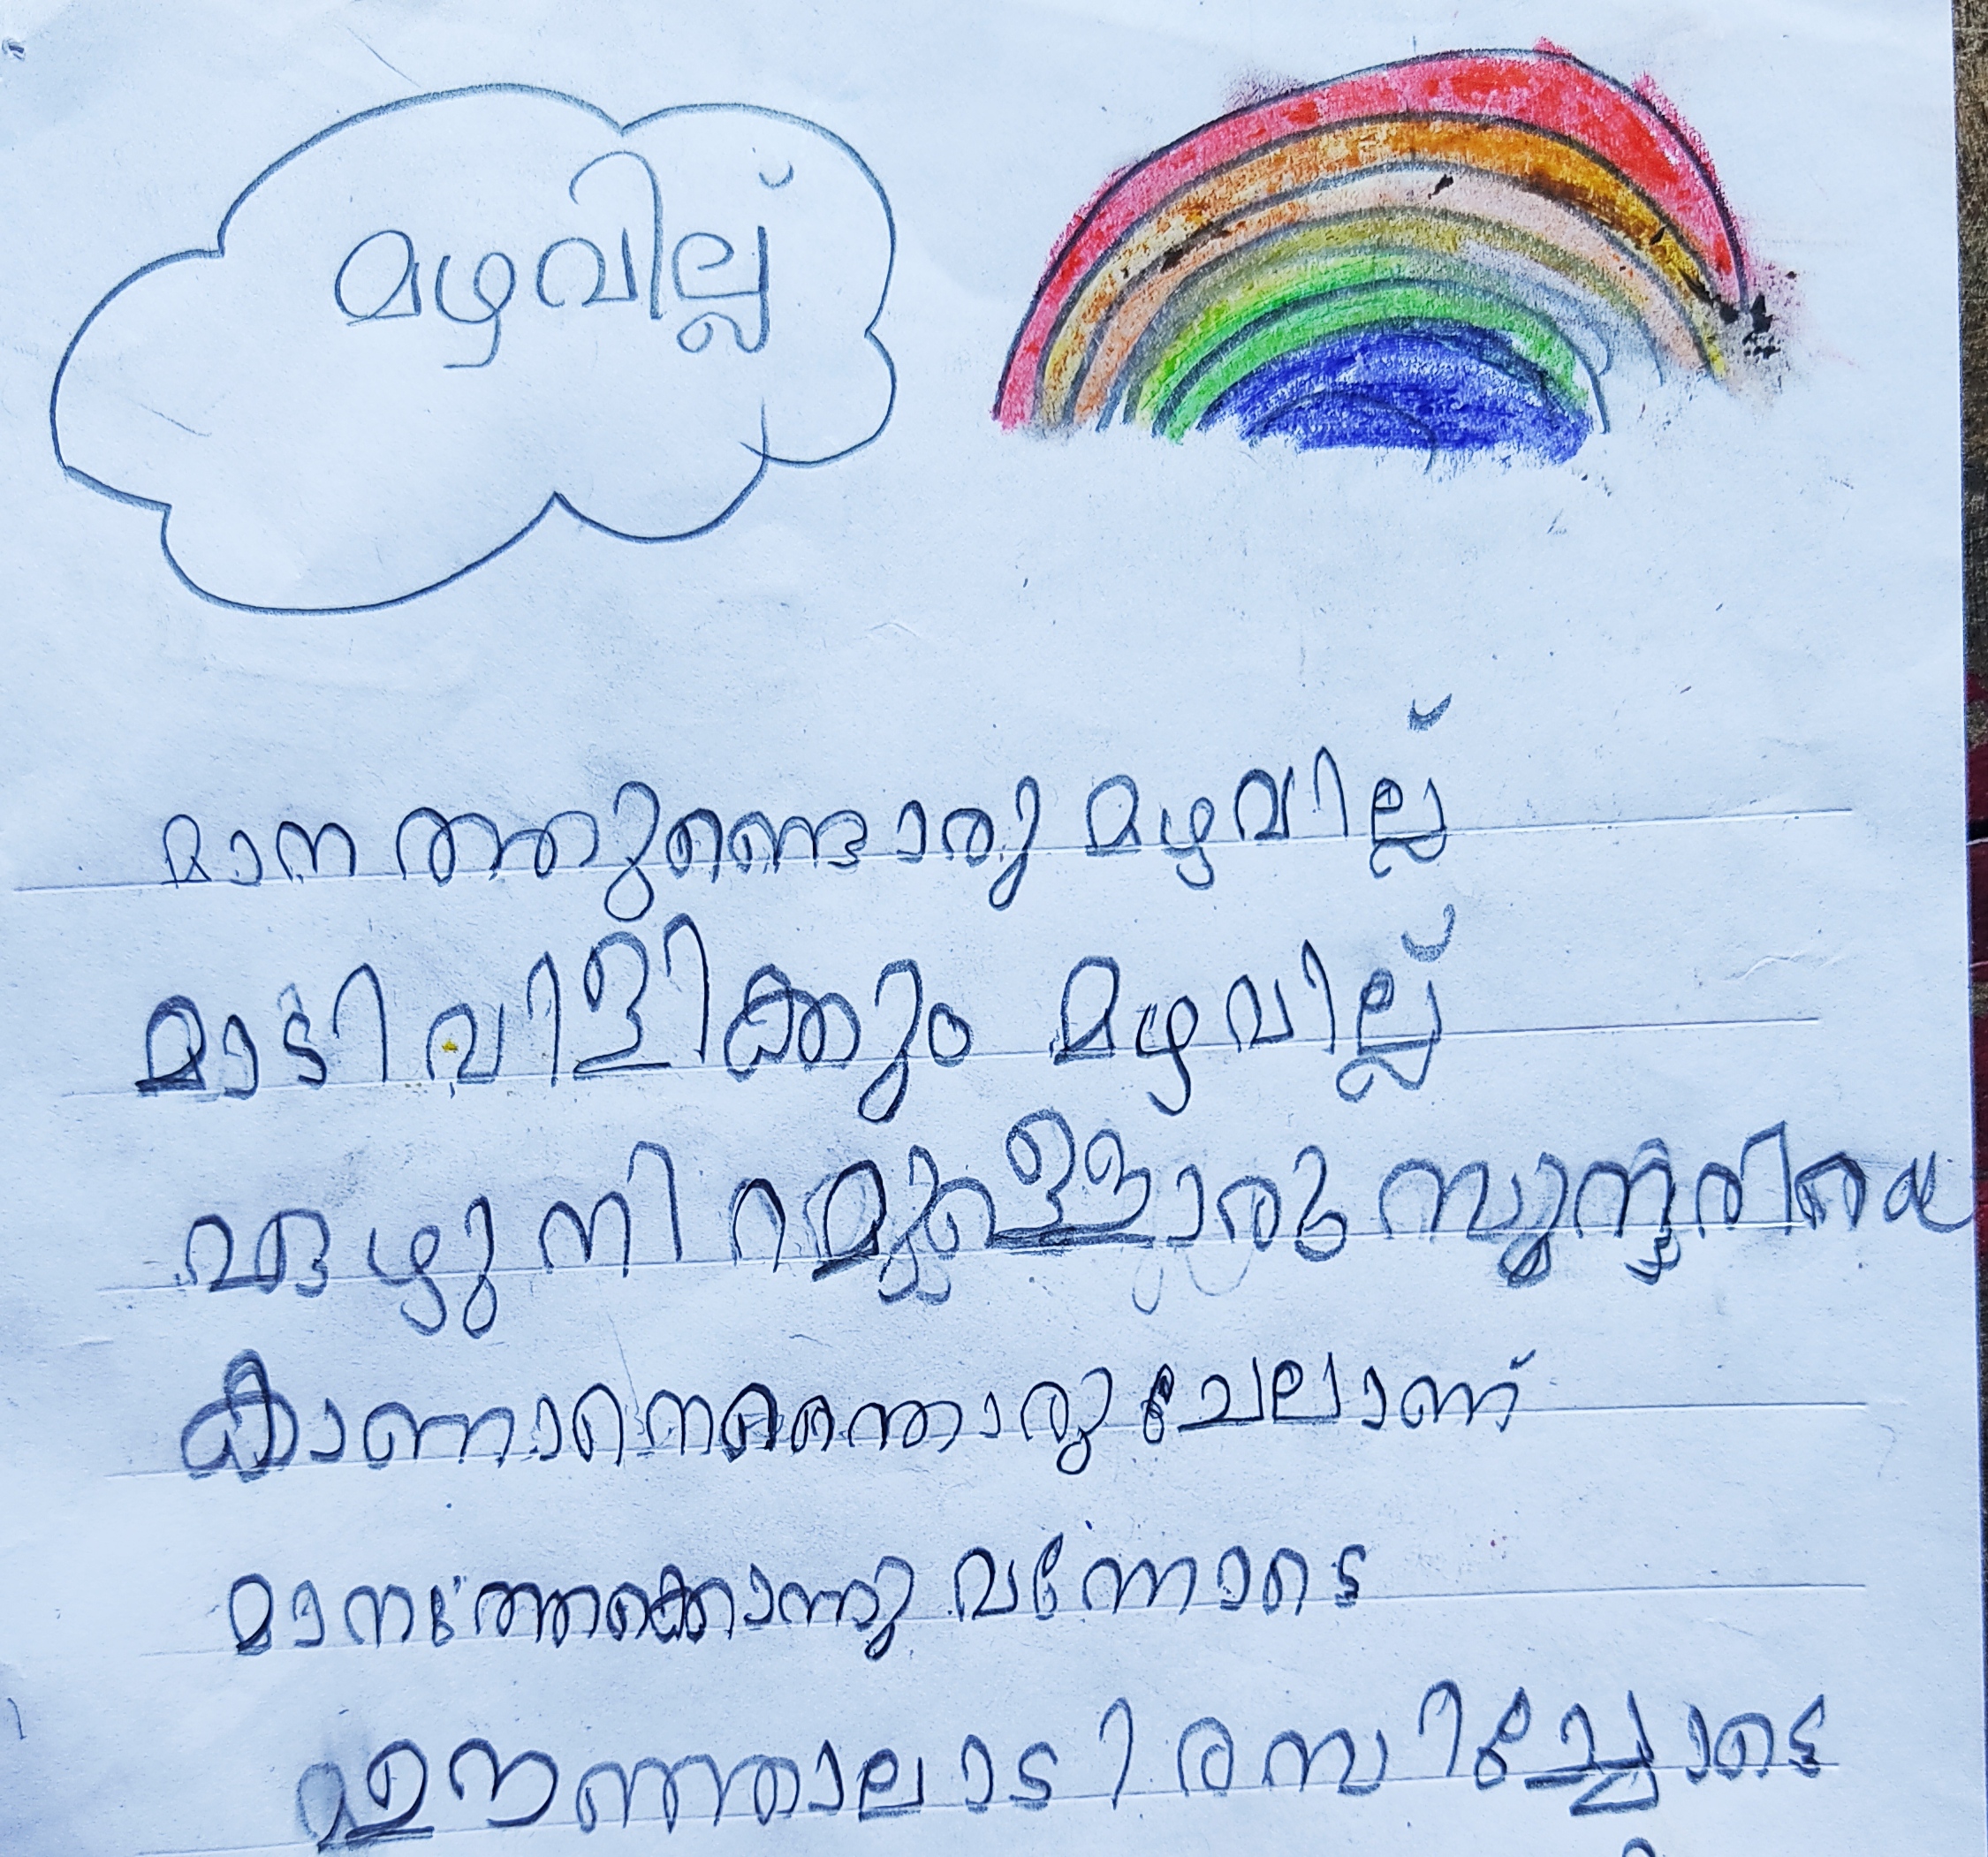 മഴവില്ല്
മാനത്തുണ്ടൊരു മഴവില്ല്
മാടിവിളിക്കും മഴവില്ല്
ഏഴുനിറമുള്ളൊരു സുന്ദരിയെ
കാണാനെന്തൊരു ചേലാണ്
മാനത്തേക്കൊന്നു വന്നോട്ടെ
ഊഞ്ഞാലാടി രസിച്ചോട്ടെ